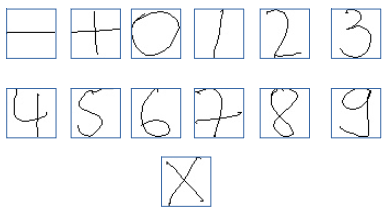 − + 0 1 2 3
4 5 6 7 8 9
X